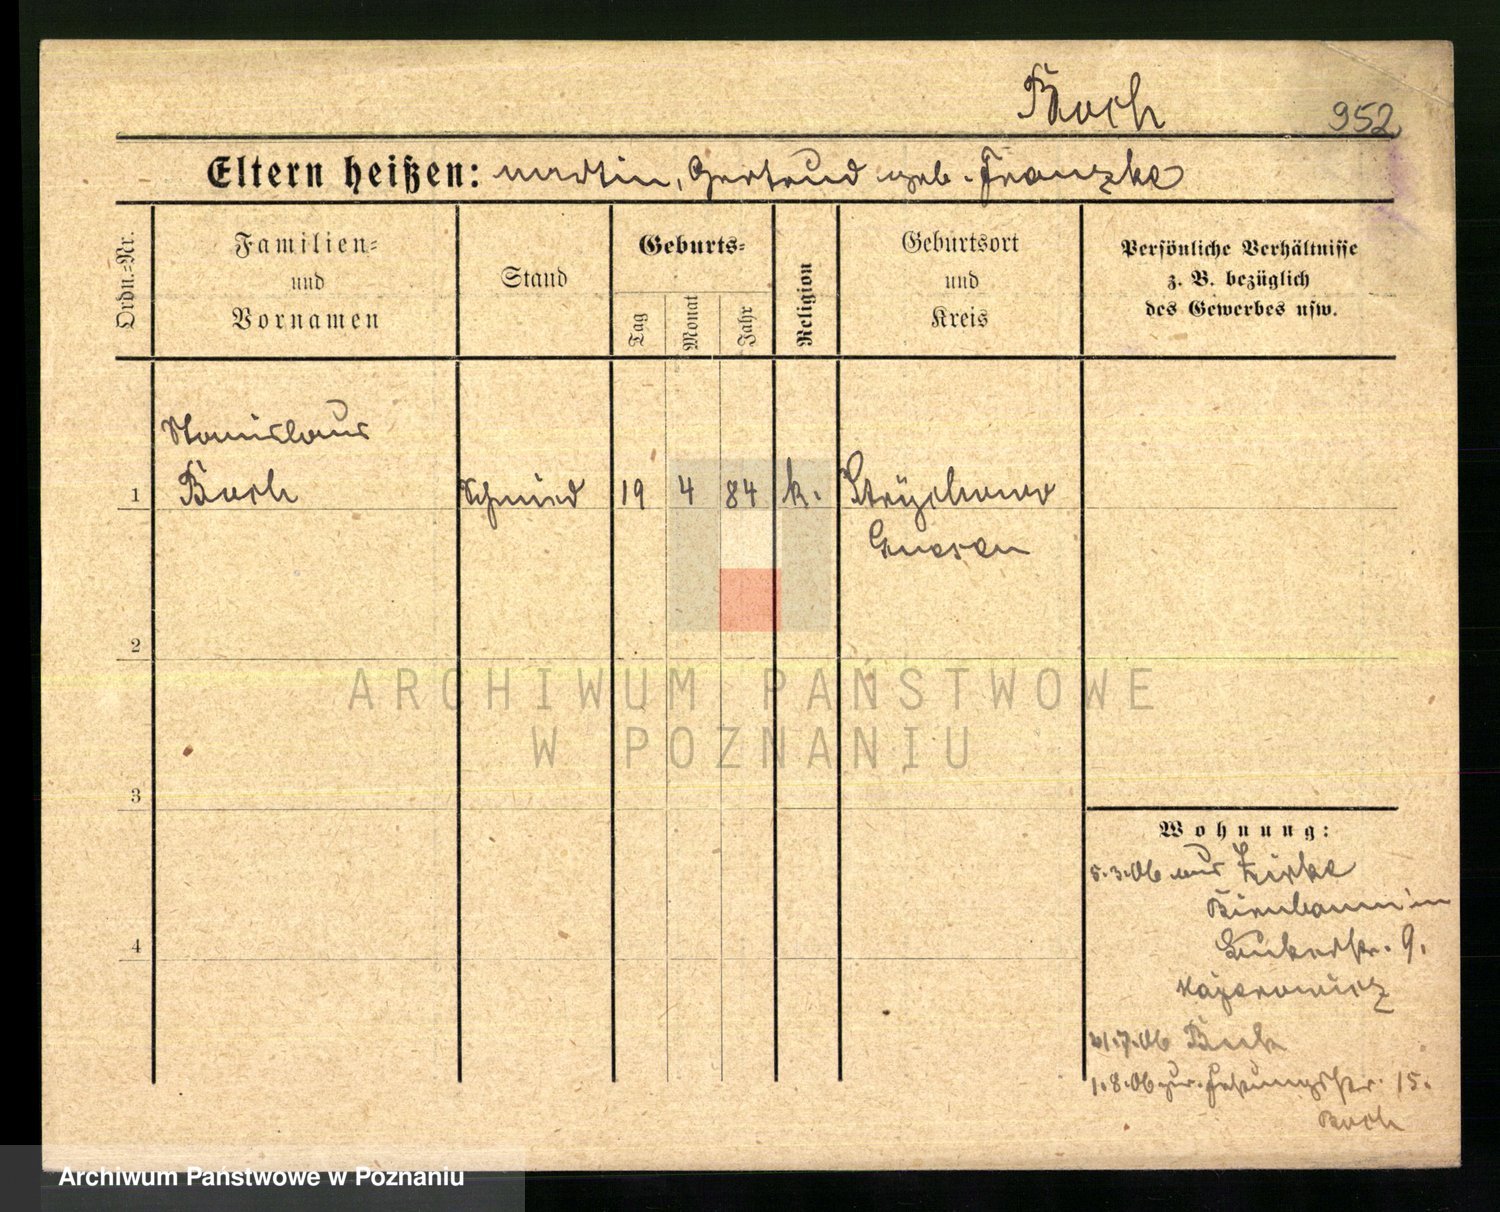 Boch 952
Eltern heißen: Martin, Gertrud geb. Franzke
Ordn.=Nr.
Familien=
und
Vornamen
Stand
Geburts=
Tag
Monat
Jahr
Religion
Geburtsort
und
Kreis
Persönliche Verhältnisse
z. B. bezüglich
des Gewerbes usw.
Stanislaus
1 Boch Schmied 19 4 84 k.
Gnesen
2
3
4
Wohnung:
5.3.06 aus Zirke
Birnbaum in
9.
7.06
1.8.06 zur. Festungsstr. 15.
Boch
ARCHIWUM PAŃSTWOWE
W POZNANIU
Archiwum Państwowe w Poznaniu